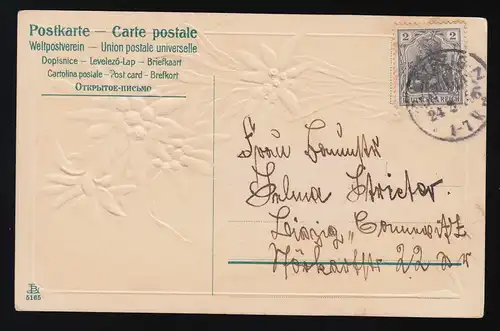 Postkarte — Carte postale
Weltpostverein — Union postale universelle
Dopisnice — Levelező-Lap — Briefkaart
Cartolina postale — Post card — Brefkort
Открытое-письмо
2 2
24
1-7 V
Frau
Selma
Leipzig, Connewitz
22
5165